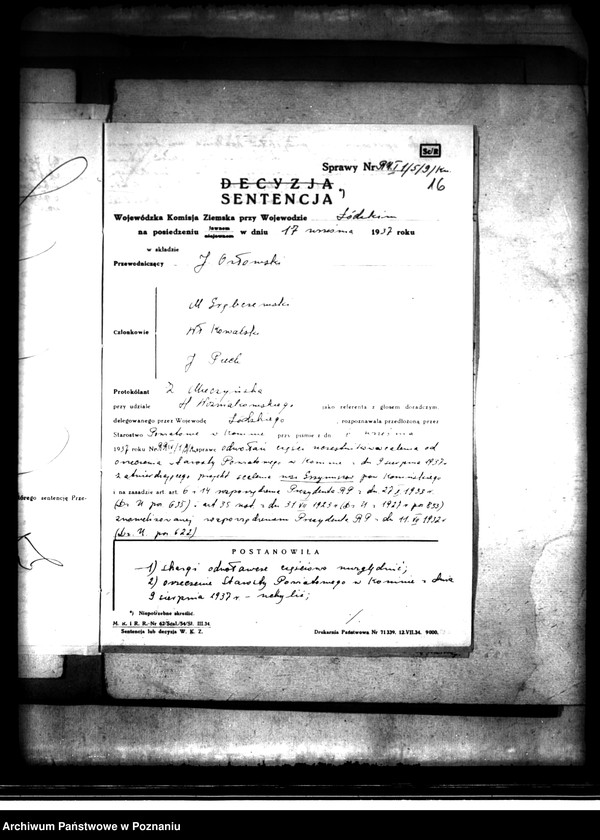 Sc/R
Sprawy Nr RUI 1/5/9/Kn.
16
DECYZJA
SENTENCJA *)
Wojewódzka Komisja Ziemska przy Wojewodzie Łódzkim
na posiedzeniu jawnem niejawnem w dniu 17 września 1937 roku
w składzie
Przewodniczący J Orłowski
Członkowie
Wł Kowalski
J Piech
Protokólant Z Mieczyńska
przy udziale jako referenta z głosem doradczym,
delegowanego przez Wojewodę Łódzkiego, rozpoznawała przedłożoną przez
Starostwo Powiatowe w Koninie przy piśmie z dn. września
1937 roku No. sprawę odwołań części uczestników scalenia od
orzeczenia Starosty Powiatowego w Koninie z dn 9 sierpnia 1937 r
zatwierdzającego projekt scalenia wsi pow Konińskiego
i na zasadzie art. art. 6 i 14 rozporządzenia Prezydenta RP z dn 27 X 1933 r
(Dz. U. poz 635) i art 35 ust z dn 31 VII 1923 r (Dz. U. z 1927 r poz 833)
znowelizowanej rozporządzeniem Prezydenta RP z dn 11 VII 1932 r
(Dz. U. poz 622)
dzego sentencję Prze-
POSTANOWIŁA
1) skargi odwoławcze częściowo uwzględnić;
2) orzeczenie Starosty Powiatowego w Koninie z dnia
9 sierpnia 1937 r - uchylić;
*) Niepotrzebne skreślić.
M. R. i R. R.-Nr 62/Scal./54/Sł. III.34.
Sentencja lub decyzja W. K. Z.
Drukarnia Państwowa Nr 71339. 12.VII.34. 9000.
Archiwum Państwowe w Poznaniu